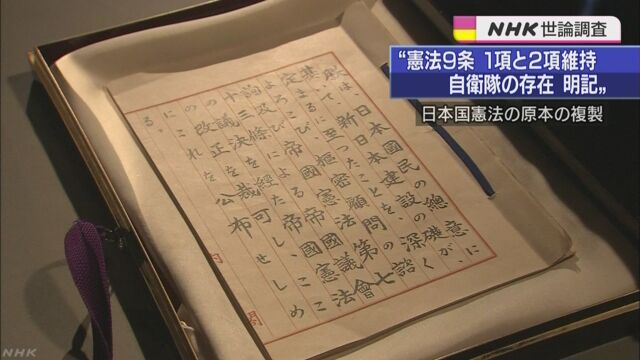 NHK 世論調査
“憲法9条 1項と2項維持
自衛隊の存在 明記„
日本国憲法の原本の複製
朕は、日本國民の總意に
基いて、新日本建設の礎が、
定まるに至つたことを、深く
よろこび、樞密顧問の諮詢
及び帝國憲法第七
十三條による帝國議會
の議決を経た帝國憲法
の改正を裁可し、ここ
にこれを公布せしめ
る。
内閣
NHK